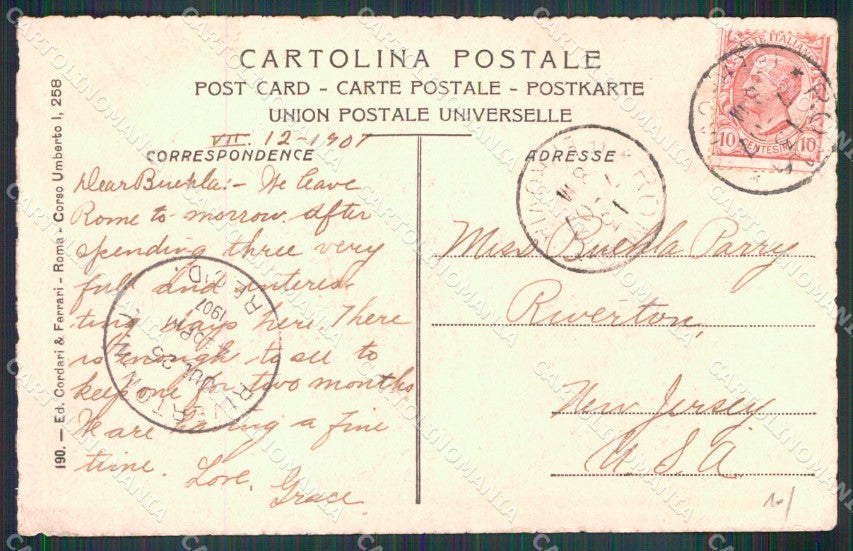 CARTOLINA POSTALE
POST CARD - CARTE POSTALE - POSTKARTE
UNION POSTALE UNIVERSELLE
VII. 12-1907
CORRESPONDENCE
ADRESSE
Dear Buekla:- We leave
Rome to-morrow. After
spending three very
full and interes-
ting days here. There
is enough to see to
keep one for two months
We are having a fine
time. Love,
Grace.
Miss Buekla Parry
Riverton,
New Jersey.
U.S.A.
190. — Ed. Cordari & Ferrari - Roma - Corso Umberto I, 258
POSTE ITALIANE
10 CENTESIMI 10
ROMA
RIVERTON N.J.
JUL 25
PM
1907
REC'D.
CARTOLINOMANIA